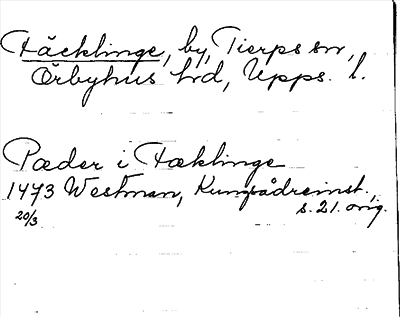 Häcklinge, by, Tierps sn,
Örbyhus hd, Upps. l.
Pæder i Hæklinge
1473 Westman, Kungsådreinst.,
20/3 s. 21. orig.